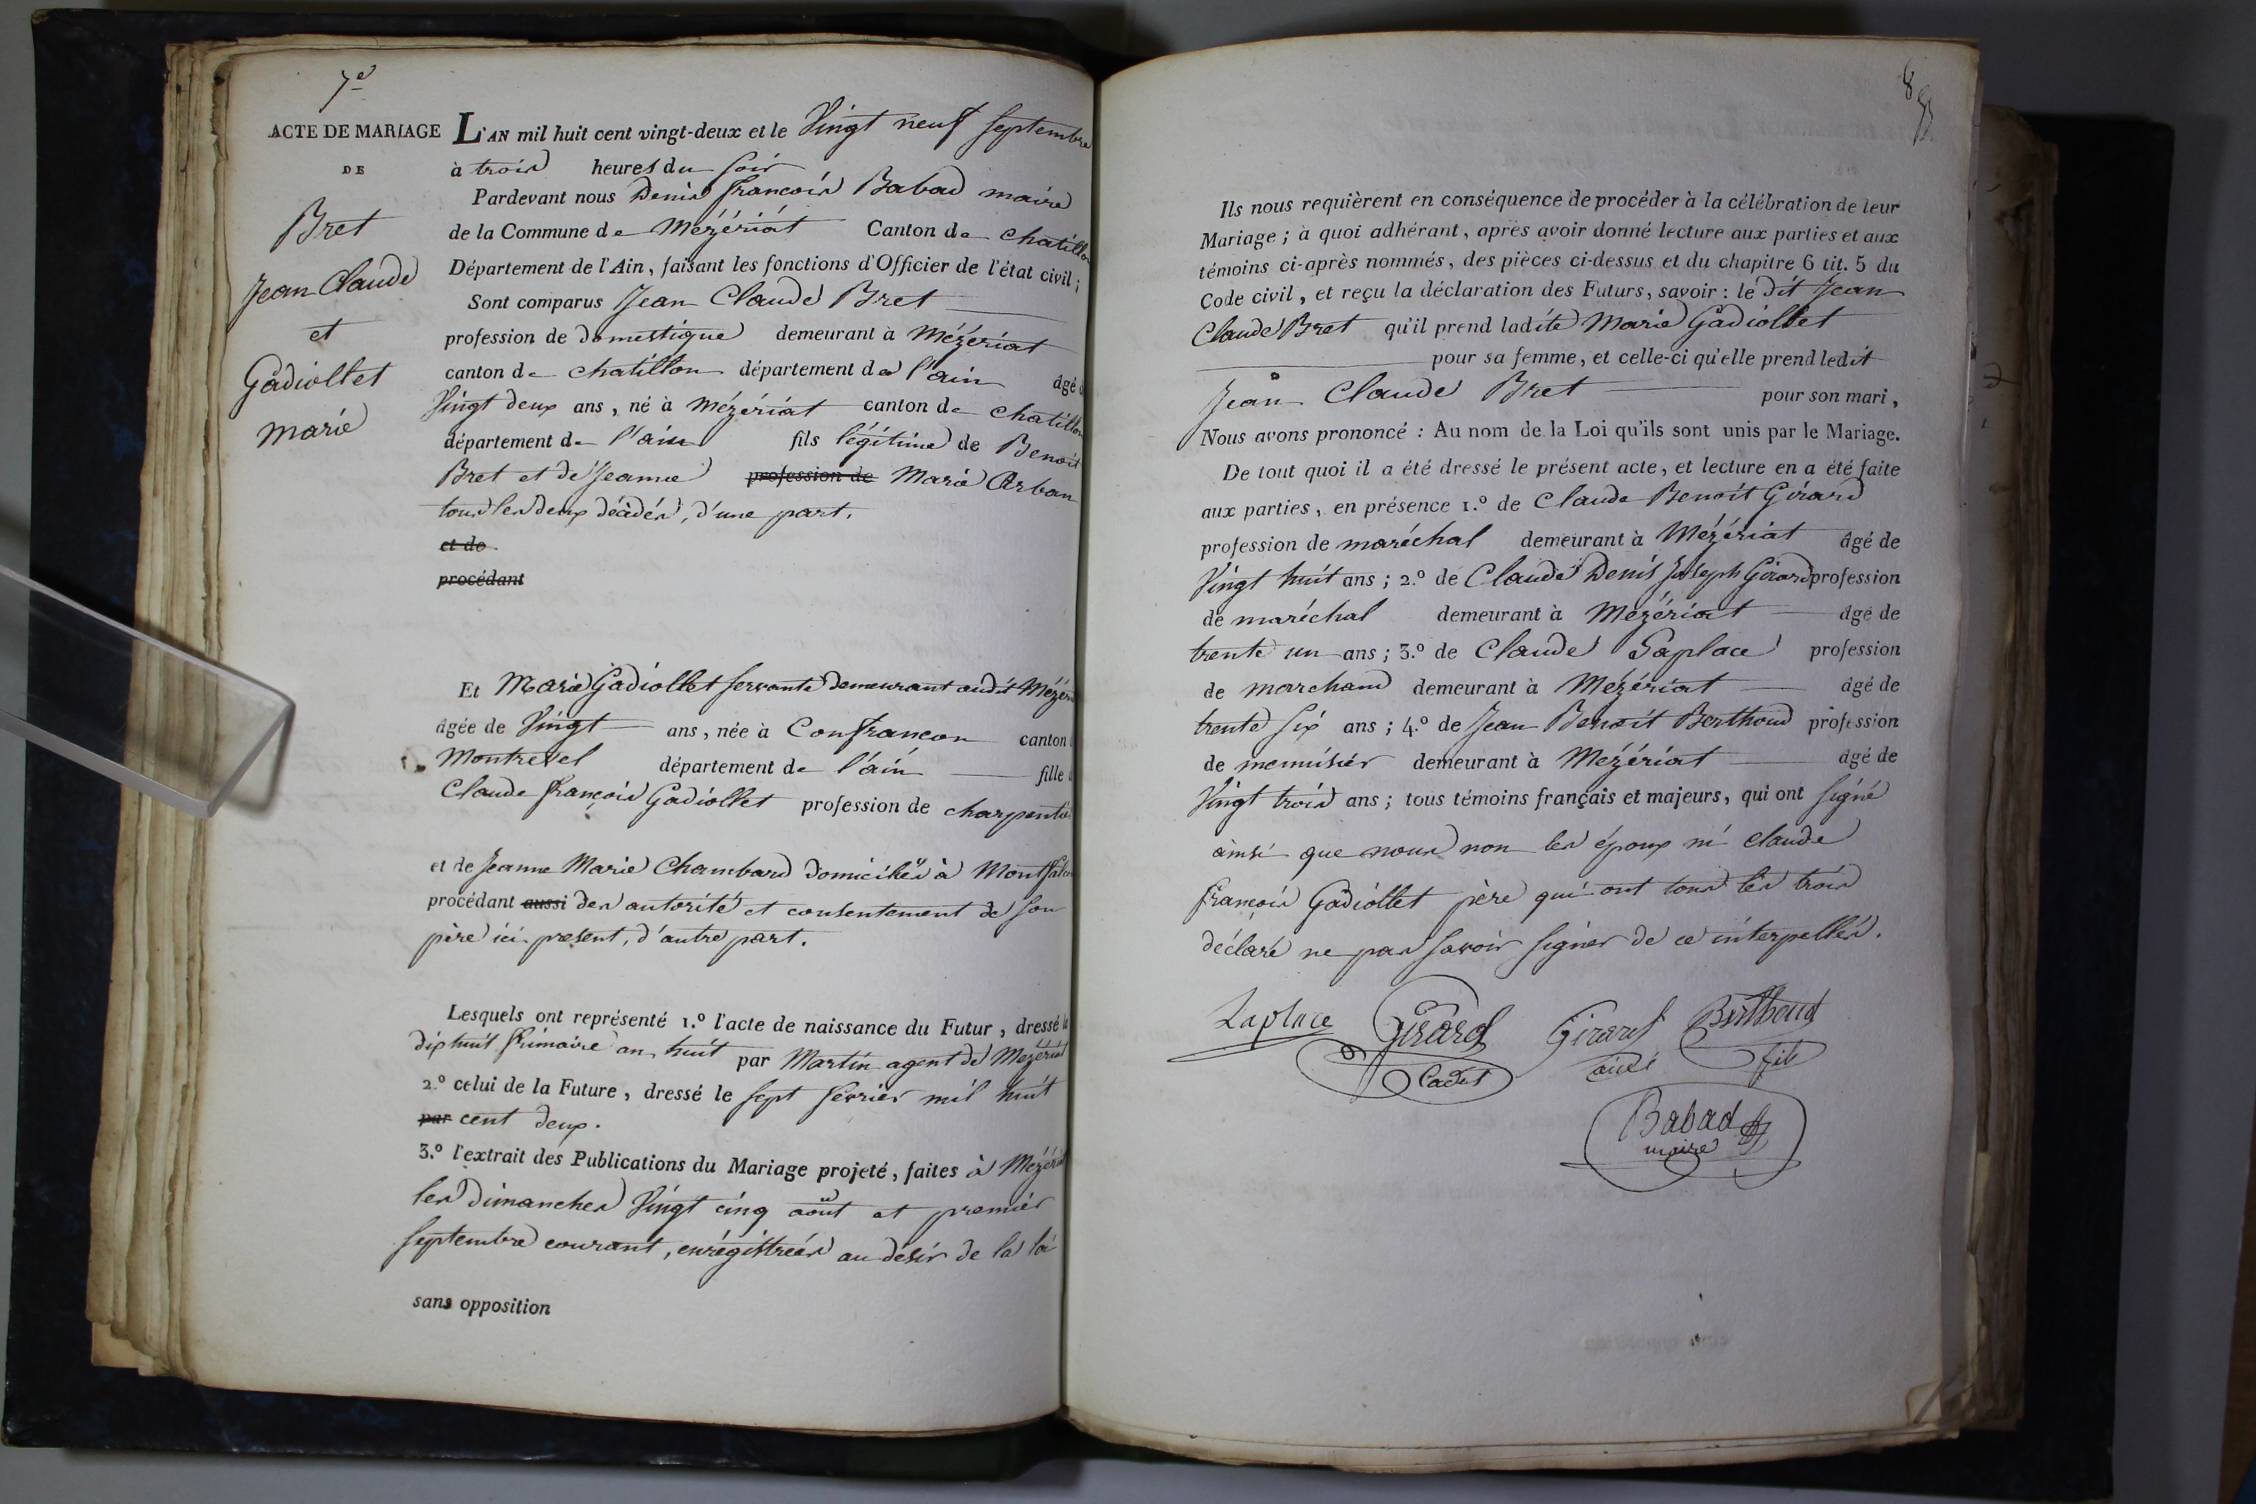 7e
ACTE DE MARIAGE
DE
Bret
Jean Claude
et
Gadiollet
marie
L'AN mil huit cent vingt-deux et le Vingt neuf septembre
à trois heures du soir
Pardevant nous Denis françois Babad maire
de la Commune de Mézériat Canton de chatillon
Département de l'Ain, faisant les fonctions d'Officier de l'état civil;
Sont comparus Jean Claude Bret
profession de domestique demeurant à Mézériat
canton de chatillon département de l'ain âgé d
Vingt deux ans, né à Mézériat canton de chatillon
département de l'ain fils légitime de Benoit
Bret et de Jeanne profession de Marie Arban
tous les deux décédés, d'une part.
et de
procédant
Et Marie Gadiollet servante demeurant audit Mézéri
âgée de Vingt ans, née à Confrancon canton d
Montrevel département de l'ain fille d
Claude françois Gadiollet profession de charpentie
et de Jeanne Marie Chambard domiciliés à Montfalcon
procédant aussi des autorité et consentement de son
père ici présent, d'autre part.
Lesquels ont représenté 1.º l'acte de naissance du Futur, dressé le
dix huit frimaire an huit par Martin agent de Mézériat
2.º celui de la Future, dressé le sept février mil huit
par cent deux.
3.º l'extrait des Publications du Mariage projeté, faites à Mézériat
les dimanches Vingt cinq août et premier
septembre courant, enrégistrées au désir de la loi
sans opposition
8
Ils nous requièrent en conséquence de procéder à la célébration de leur
Mariage; à quoi adhérant, après avoir donné lecture aux parties et aux
témoins ci-après nommés, des pièces ci-dessus et du chapitre 6 tit. 5 du
Code civil, et reçu la déclaration des Futurs, savoir: le dit Jean
Claude Bret qu'il prend ladite Marie Gadiollet
pour sa femme, et celle-ci qu'elle prend ledit
Jean Claude Bret pour son mari,
Nous avons prononcé: Au nom de la Loi qu'ils sont unis par le Mariage.
De tout quoi il a été dressé le présent acte, et lecture en a été faite
aux parties, en présence 1.º de Claude Benoit Girard
profession de maréchal demeurant à Mézériat âgé de
Vingt huit ans; 2.º de Claude Denis Joseph Girard profession
de maréchal demeurant à Mézériat âgé de
trente un ans; 3.º de Claude Laplace profession
de marchand demeurant à Mézériat âgé de
trente six ans; 4.º de Jean Benoit Berthoud profession
de menuisier demeurant à Mézériat âgé de
Vingt trois ans; tous témoins français et majeurs, qui ont signé
ainsi que nous non les époux ni claude
françois Gadiollet père qui ont tous les trois
déclaré ne pas savoir signer de ce interpellés.
Laplace Girard Girard Berthoud
Cadet ainé fils
Babad
maire